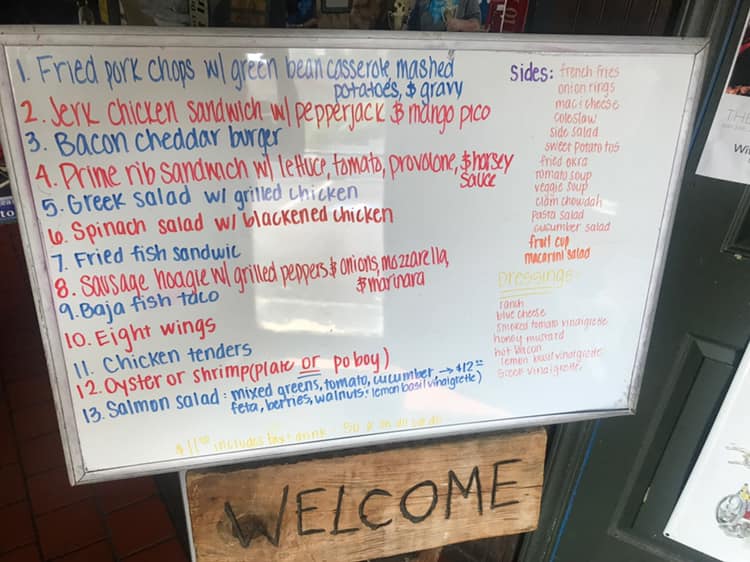 1. Fried pork chops w/ green bean casserole, mashed
potatoes, $ gravy
2. Jerk Chicken sandwich w/ pepperjack $ mango pico
3. Bacon cheddar burger
4. Prime rib sandwich w/ lettuce, tomato, provolone, $ horsey
sauce
5. Greek salad w/ grilled chicken
6. Spinach salad w/ blackened chicken
7. Fried fish sandwic
8. Sausage hoagie w/ grilled peppers $ onions, mozzarella,
$ marinara
9. Baja fish taco
10. Eight wings
11. Chicken tenders
12. Oyster or shrimp (plate or po boy)
13. Salmon salad: mixed greens, tomato, cucumber → $12
feta, berries, walnuts: lemon basil vinaigrette)
includes drink
Sides: french fries
onion rings
mac i cheese
coleslaw
side salad
sweet potato tots
fried okra
tomato soup
veggie soup
clam chowdah
pasta salad
cucumber salad
fruit cup
macaroni salad
Dressings:
ranch
blue cheese
smoked tomato vinaigrette
honey mustard
hot bacon
lemon basil vinaigrette
Greek vinaigrette
WELCOME